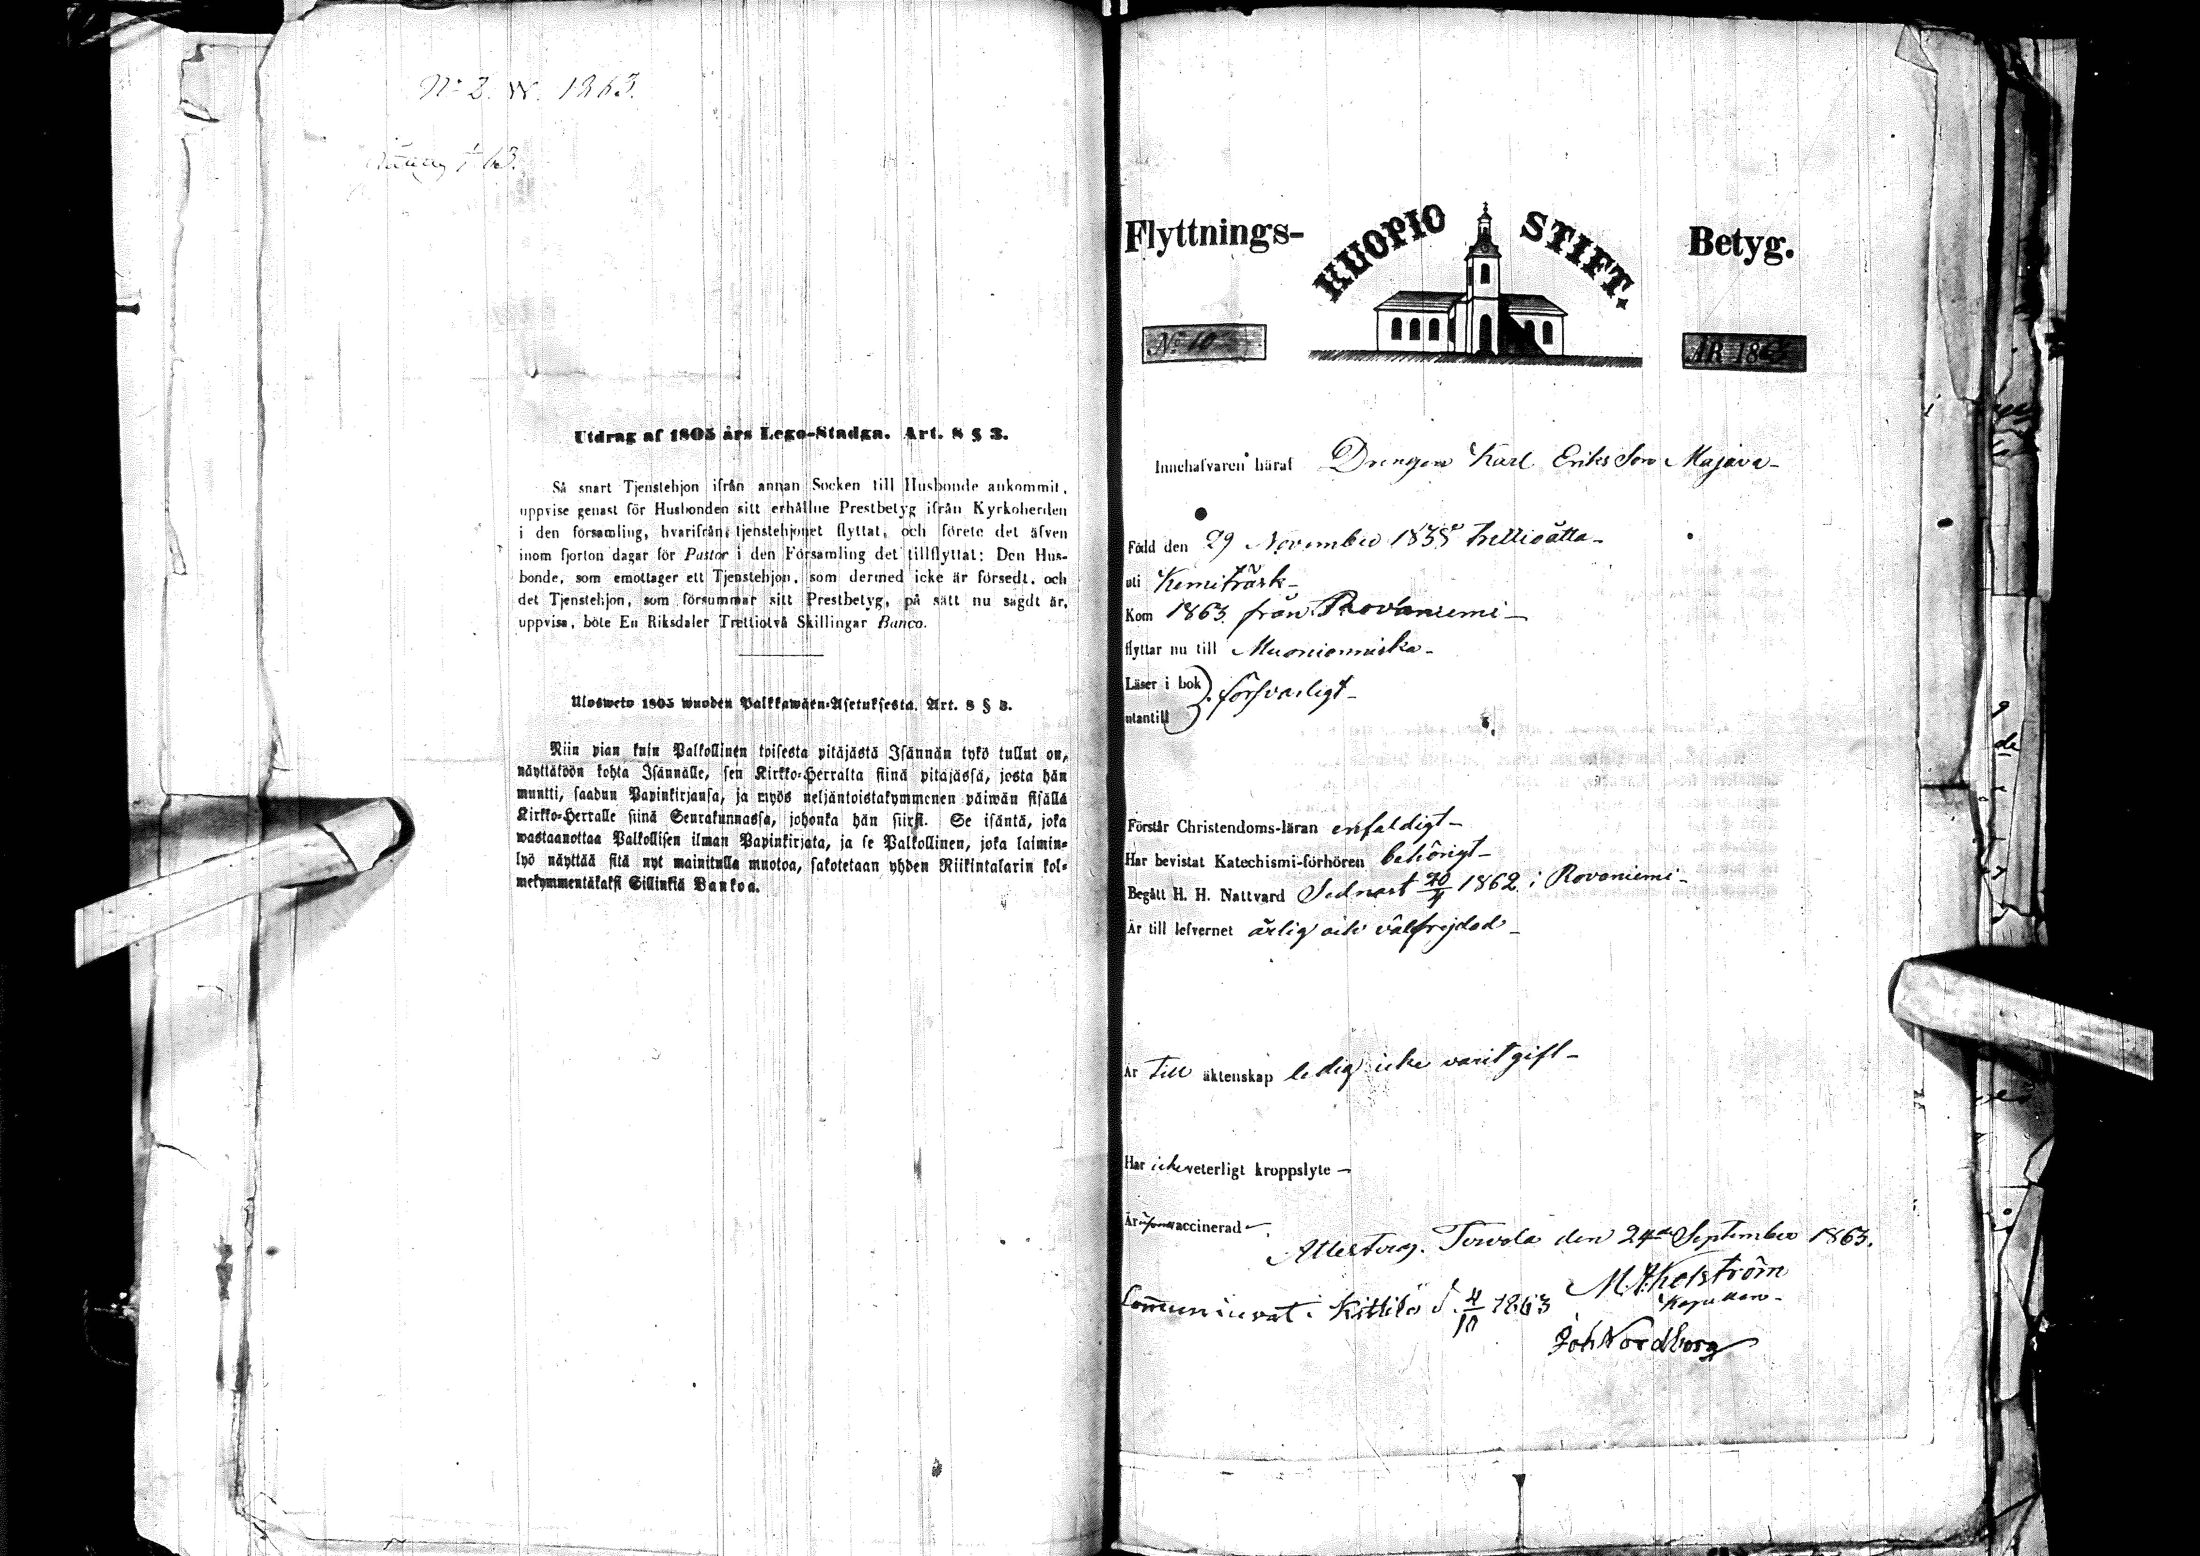 No 2. W. 1863.
Utdrag af 1805 års Lego-Stadga. Art. 8 § 3.
Så snart Tjenstehjon ifrån annan Socken till Husbonde ankommit,
uppvise genast för Husbonden sitt erhållne Prestbetyg ifrån Kyrkoherden
i den forsamling, hvarifrån tjenstehjonet flyttat, och förete det äfven
inom fjorton dagar för Pastor i den Församling det tillflyttat: Den Hus-
bonde, som emottager ett Tjenstehjon, som dermed icke är försedt, och
det Tjenstehjon, som försummar sitt Prestbetyg, på sätt nu sagdt är,
uppvisa, böte En Riksdaler Trettiotvå Skillingar Banco.
Ulosweto 1805 wuoden Palkkawäen-Asetuksesta. Art. 8 § 3.
Niin pian kuin Palkollinen toisesta pitäjästä Isännän tykö tullut on,
näyttäköön kohta Isännälle, sen Kirkko-Herralta siinä pitäjässä, josta hän
muutti, saadun Papinkirjansa, ja myös neljäntoistakymmenen päiwän sisällä
Kirkko-Herralle siinä Seurakunnassa, johonka hän siirsi. Se isäntä, joka
wastaanottaa Palkollisen ilman Papinkirjata, ja se Palkollinen, joka laimin-
lyö näyttää sitä nyt mainitulla muotoa, sakotetaan yhden Riikintalarin kol-
mekymmentäkaksi Sillinkiä Bankoa.
Flyttnings- KUOPIO STIFT. Betyg.
No 10 ÅR 1863
Innehafvaren häraf Drengen Karl Eriks Son Majava-
Född den 29 November 1838 trettioåtta-
uti Kemiträsk-
Kom 1863 från Rovaniemi-
flyttar nu till Muonionniska-
Läser i bok
utantill } försvarligt-
Förstår Christendoms-läran enfaldigt-
Har bevistat Katechismi-förhören behörigt-
Begått H. H. Nattvard Sednast 20/4 1862 i Rovaniemi-
Är till lefvernet ärlig och välfrejdad-
Är till äktenskap ledig icke varit gift-
Har icke veterligt kroppslyte-
Är vaccinerad-
Attesterar. Tervola den 24de September 1863.
M. A. Kelström
Kapellan-
Communicerat i Kittilä d. 4/10 1863
Joh Nordberg